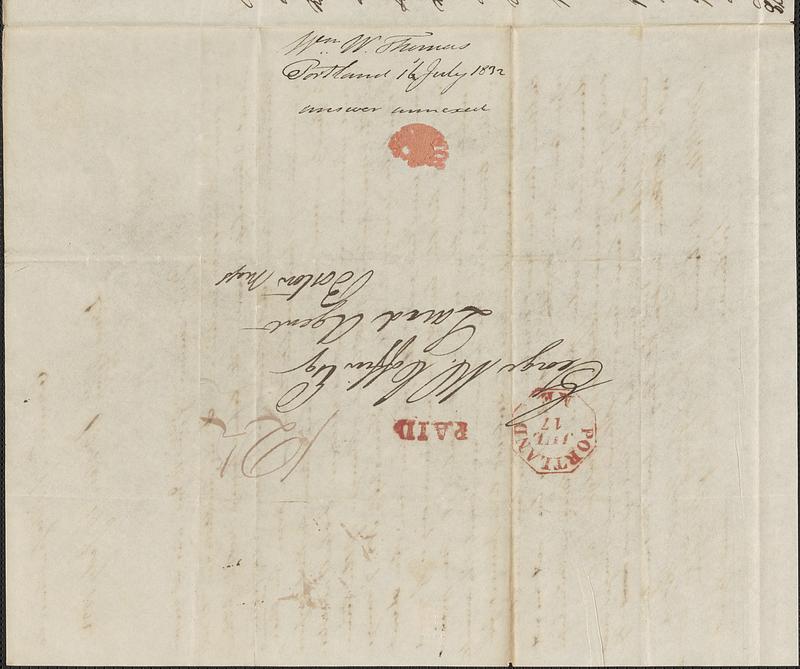 Wm. W. Thomas
Portland 16 July 1832
answer annexed
George W. Coffin Esq
Land Agent
Boston Mass
PAID
12½
PORTLAND
ME
JUL
17